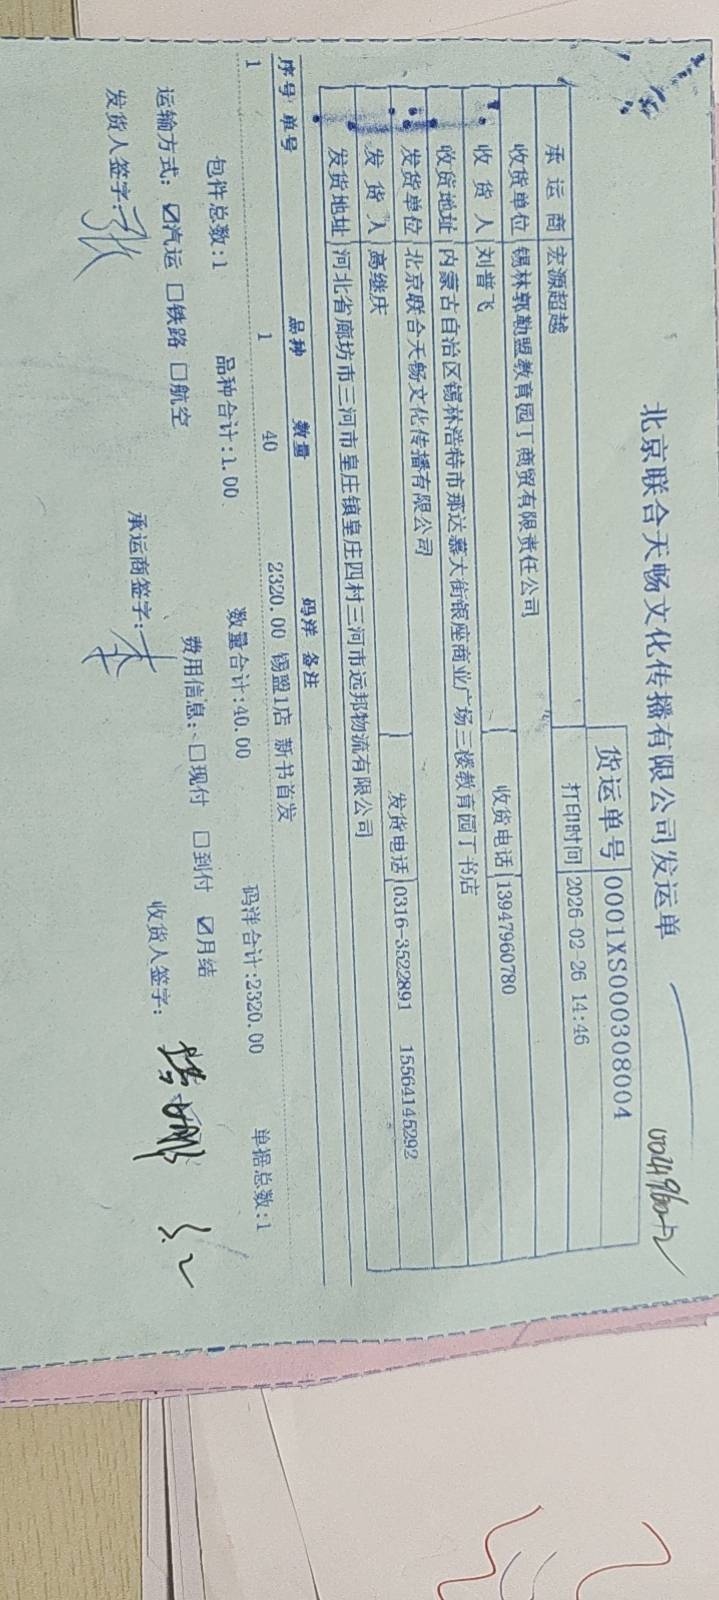 北京联合天畅文化传播有限公司发运单
货运单号 0001XS000308004
承运商 宏源超越 打印时间 2026-02-26 14:46
收货单位 锡林郭勒盟教育园丁商贸有限责任公司
收货人 刘普飞 收货电话 13947960780
收货地址 内蒙古自治区锡林浩特市那达慕大街银座商业广场三楼教育园丁书店
发货单位 北京联合天畅文化传播有限公司
发货人 高继庆 发货电话 0316-3522891 15564145292
发货地址 河北省廊坊市三河市皇庄镇皇庄四村三河市远邦物流有限公司
序号 单号 品种 数量 码洋 备注
1 1 40 2320.00 锡盟1店 新书首发
包件总数:1 品种合计:1.00 数量合计:40.00 码洋合计:2320.00 单据总数:1
运输方式: ☑汽运 □铁路 □航空 费用信息: □现付 □到付 ☑月结
发货人签字: 张 承运商签字: 收货人签字: